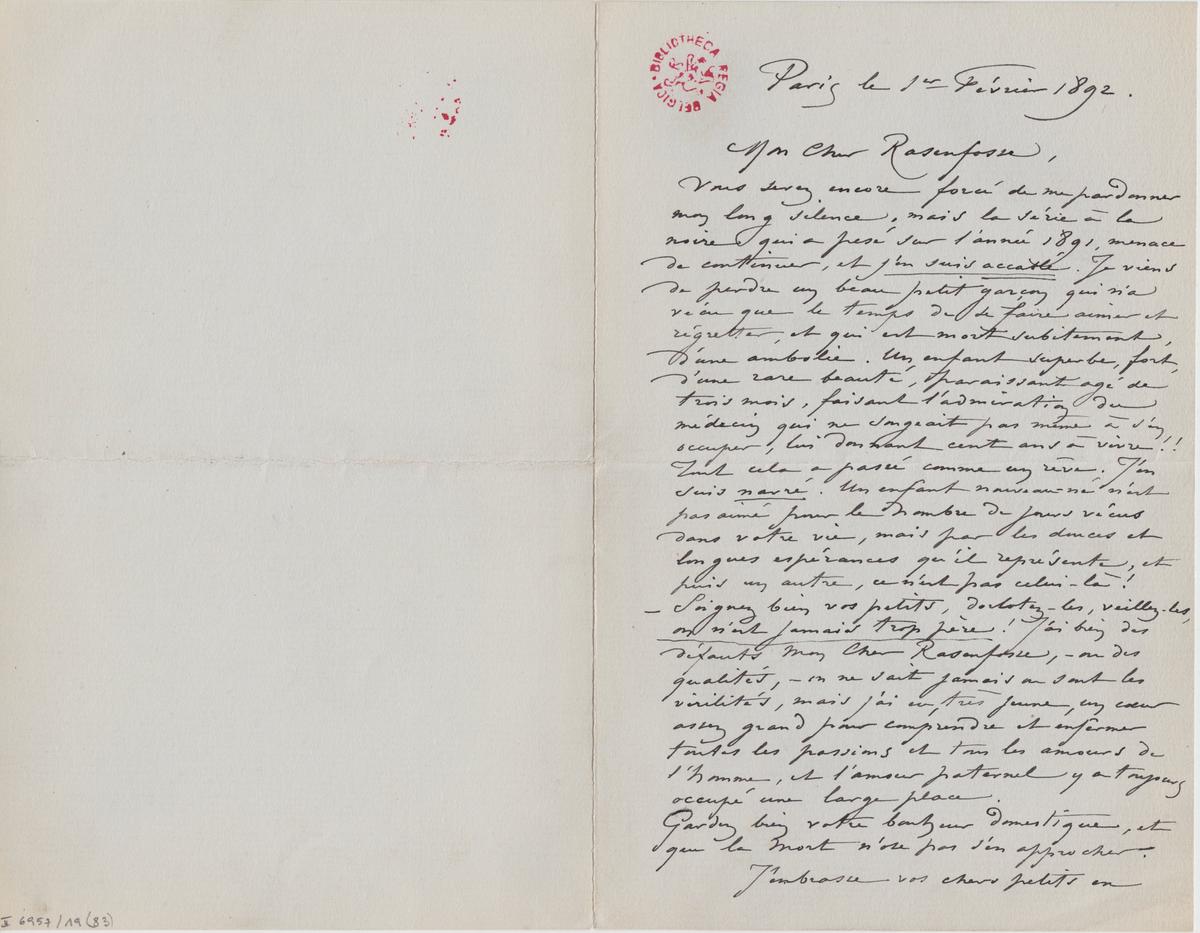 BIBLIOTHECA REGIA BELGICA
Paris le 1er Février 1892.
Mon Cher Rasenfosse,
Vous serez encore forcé de me pardonner
mon long silence, mais la série à la
noire qui a pesé sur l'année 1891, menace
de continuer, et j'en suis accablé. Je viens
de perdre un beau petit garçon qui n'a
vécu que le temps de se faire aimer et
régretter, et qui est mort subitement,
d'une ambolie. Un enfant superbe, fort,
d'une rare beauté, paraissant agé de
trois mois, faisant l'admiration du
médecin qui ne songeait pas même à s'en
occuper, lui donnant cent ans à vivre!!
Tout cela a passé comme un rêve. J'en
suis navré. Un enfant nouveau-né n'est
pas aimé pour le nombre de jours vécus
dans votre vie, mais par les douces et
longues espérances qu'il représente, et
puis un autre, ce n'est pas celui-là!
– Soignez bien vos petits, dorlotez-les, veillez-les,
on n'est jamais trop père! J'ai bien des
défauts Mon Cher Rasenfosse, – ou des
qualités, – on ne sait jamais où sont les
virilités, mais j'ai eu, très jeune, un cœur
assez grand pour comprendre et enfermer
toutes les passions et tous les amours de
l'homme, et l'amour paternel y a toujours
occupé une large place.
Gardez bien votre bonheur domestique, et
que la Mort n'ose pas s'en approcher.
J'embrasse vos chers petits en
II 6957/19 (83)